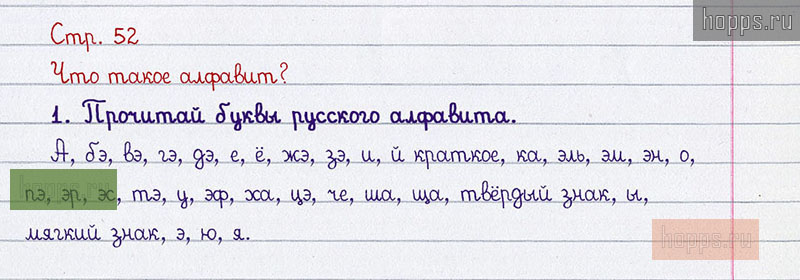 hopps.ru
Стр. 52
Что такое алфавит?
1. Прочитай буквы русского алфавита.
А, бэ, вэ, гэ, дэ, е, ё, жэ, зэ, и, й краткое, ка, эль, эм, эн, о,
пэ, эр, эс, тэ, у, эф, ха, цэ, че, ша, ща, твёрдый знак, ы,
мягкий знак, э, ю, я.
hopps.ru